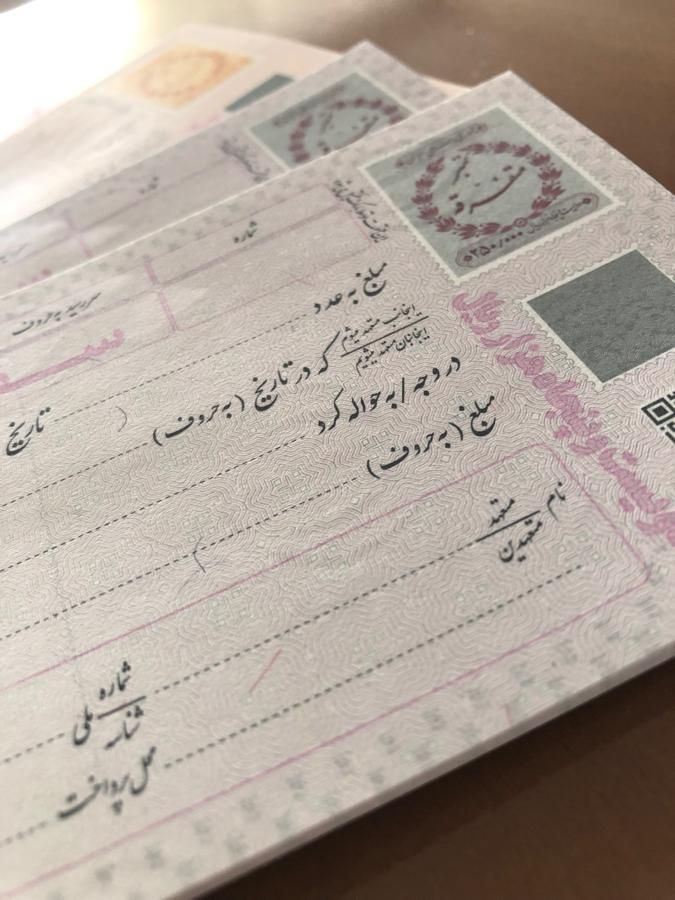 تمبر
متفرقه
۲۵۰/۰۰۰
شماره
مبلغ به عدد
سررسید به حروف
اینجانب متعهد میشوم
اینجانبان متعهد میشویم
که در تاریخ (به حروف)
تاریخ
در وجه / به حواله کرد
مبلغ (به حروف)
دویست و پنجاه هزار ریال
نام متعهد
متعهدین
شماره
شناسه ملی
محل پرداخت